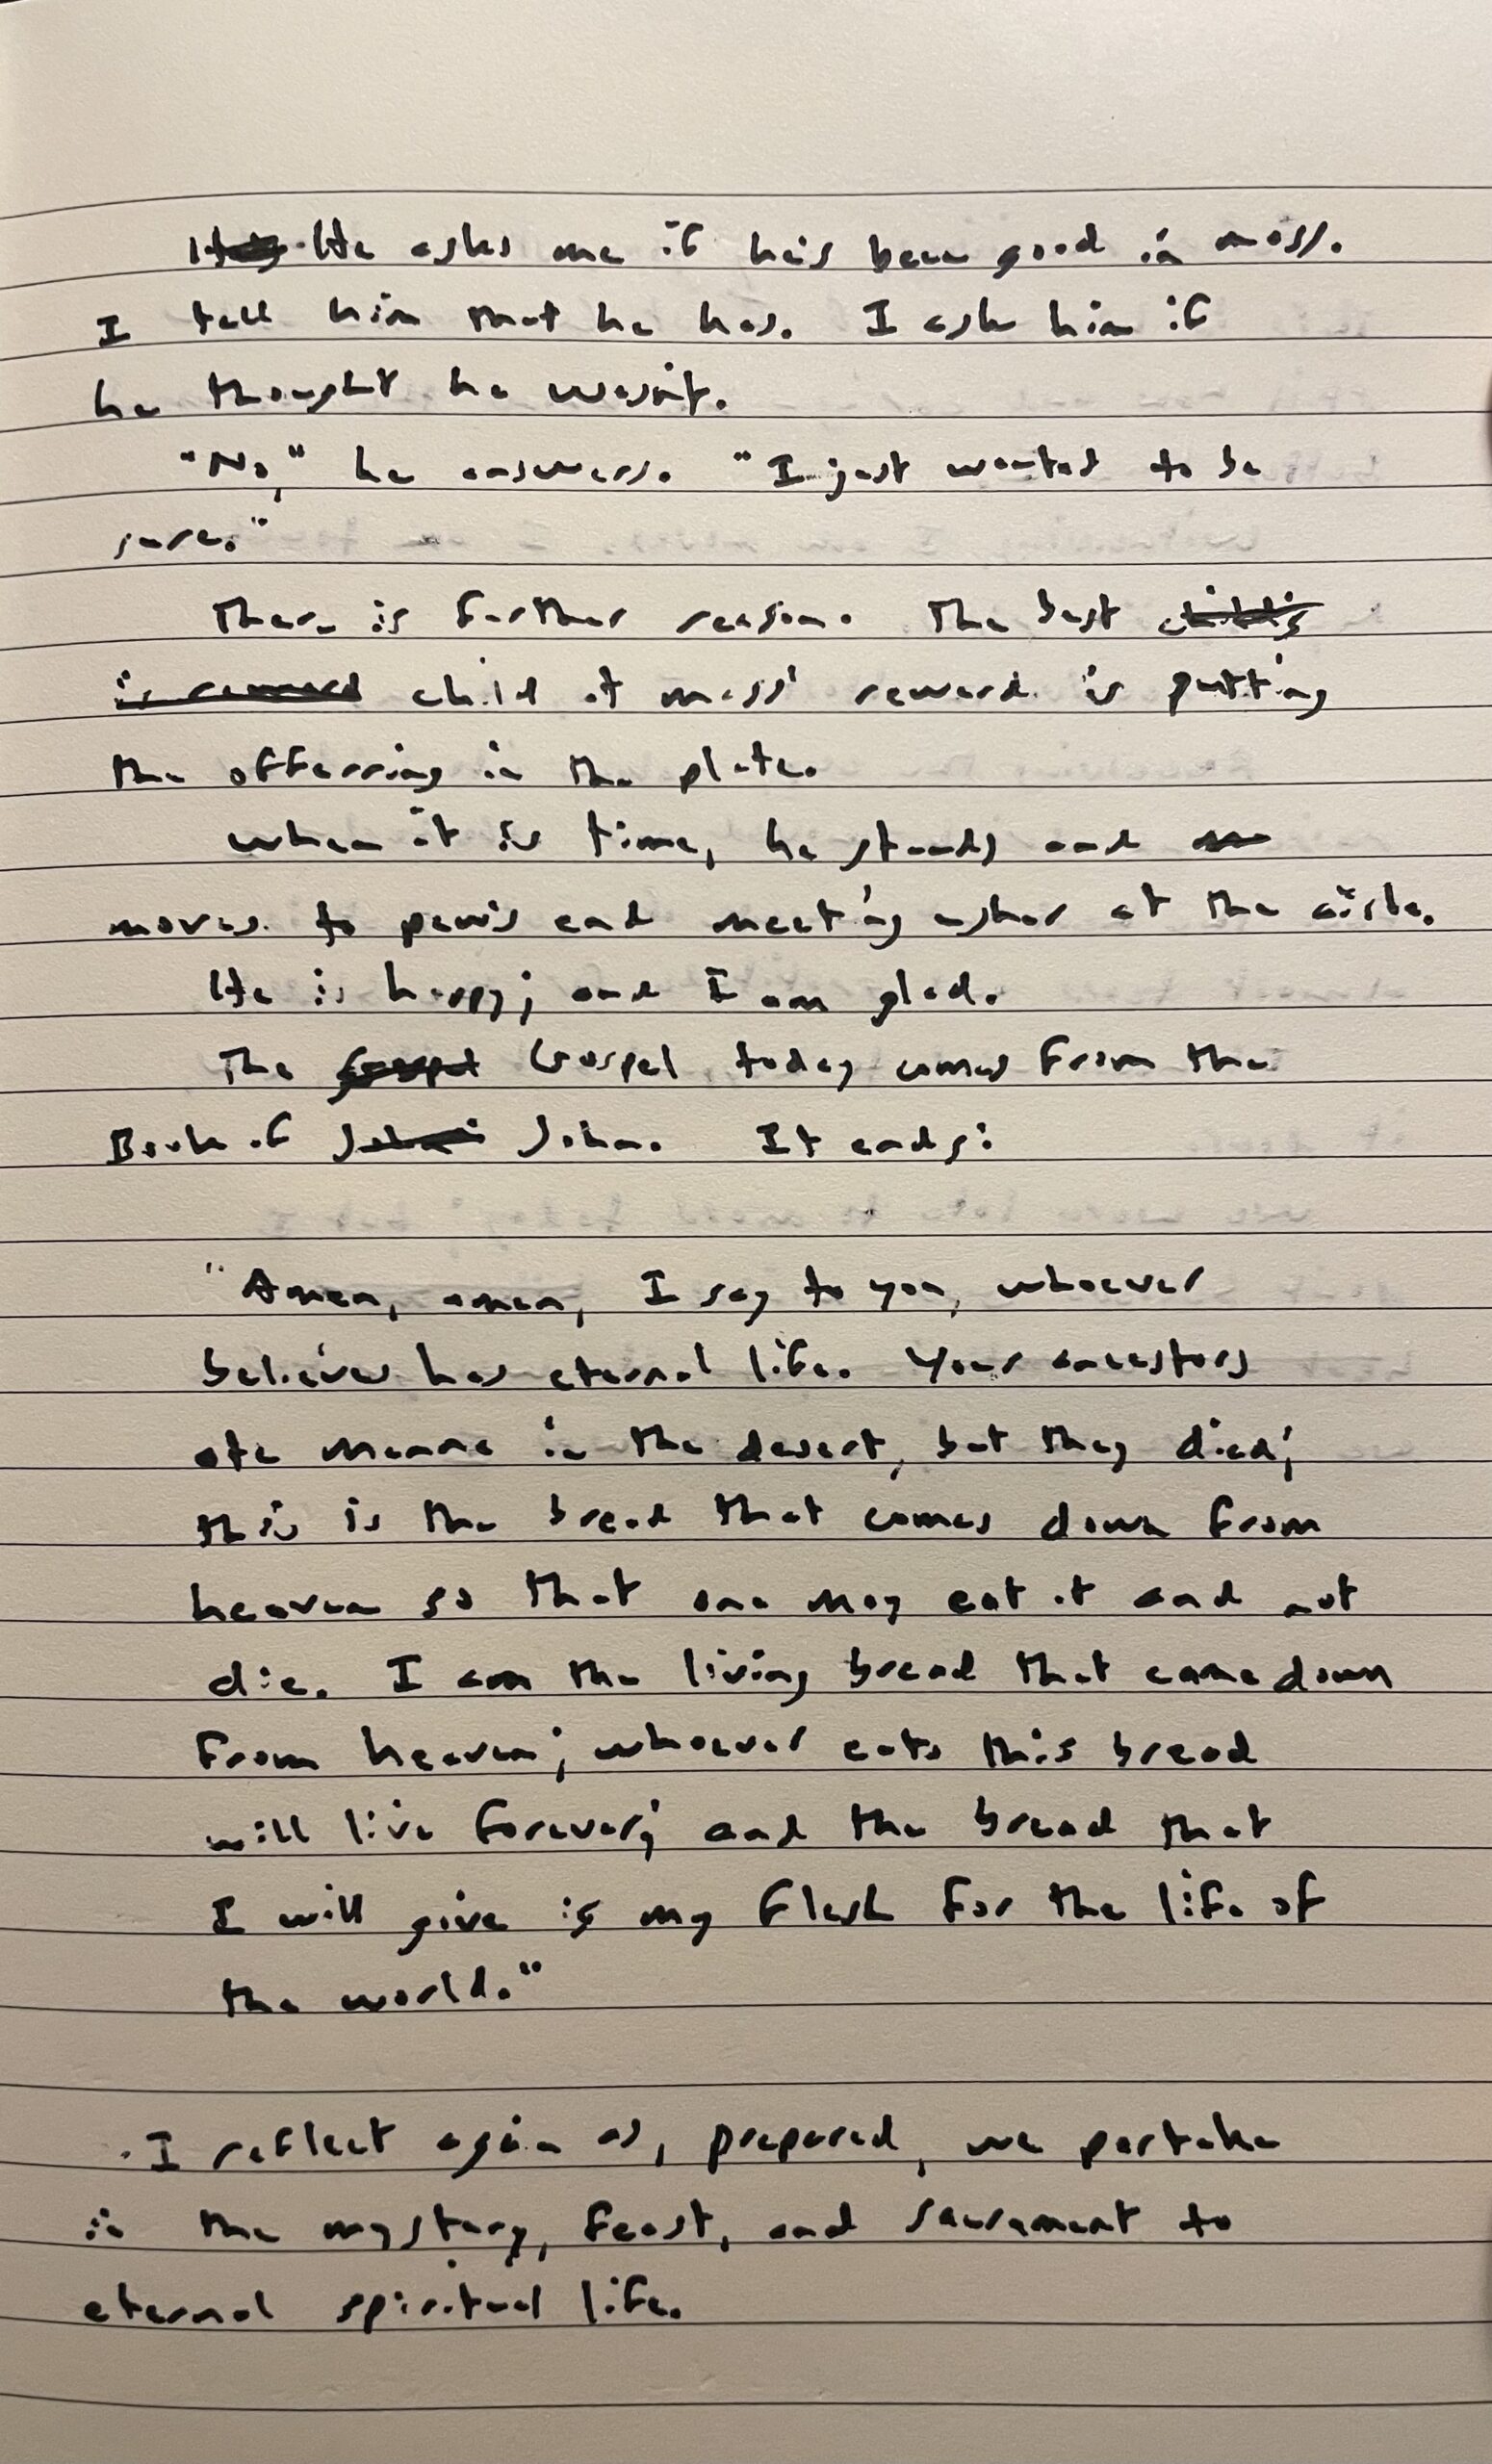 He asks me if he's been good in mass.
I tell him that he has. I ask him if
he thought he wasn't.
"No," he answers. "I just wanted to be
sure."
There is further reason. The best
is reward child at mass' reward is putting
the offerring in the plate.
When it is time, he stands and
moves to pew's end meeting usher at the aisle.
He is happy; and I am glad.
The Gospel Gospel today comes from the
Book of John. It ends:
"Amen, amen, I say to you, whoever
believes has eternal life. Your ancestors
ate manna in the desert, but they died;
this is the bread that comes down from
heaven so that one may eat it and not
die. I am the living bread that came down
from heaven; whoever eats this bread
will live forever; and the bread that
I will give is my flesh for the life of
the world."
I reflect again as, prepared, we partake
in the mystery, feast, and sacrament to
eternal spiritual life.